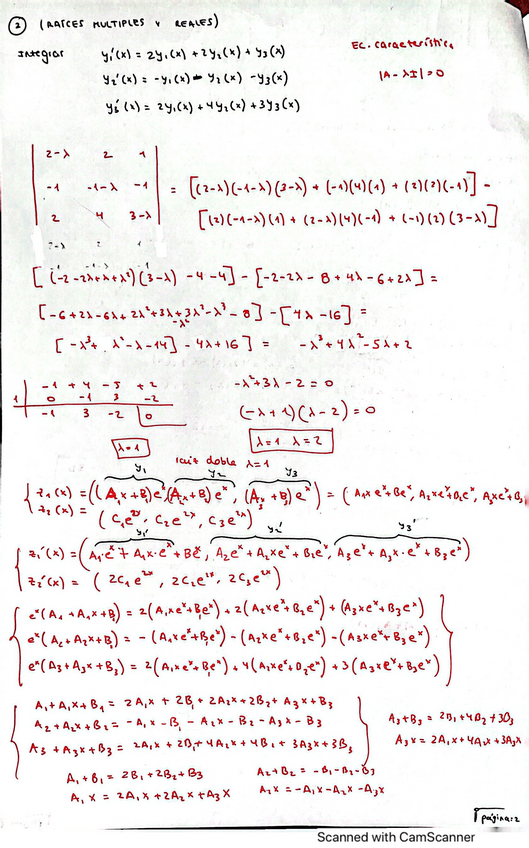 ② (RAÍCES MULTIPLES Y REALES)
Integrar y₁'(x) = 2y₁(x) + 2y₂(x) + y₃(x)
EC. característica
y₂'(x) = -y₁(x) - y₂(x) - y₃(x)
|A - λI| = 0
y₃'(x) = 2y₁(x) + 4y₂(x) + 3y₃(x)
2-λ 2 1
-1 -1-λ -1 = [(2-λ)(-1-λ)(3-λ) + (-1)(4)(1) + (2)(2)(-1)] -
2 4 3-λ [(2)(-1-λ)(1) + (2-λ)(4)(-1) + (-1)(2)(3-λ)]
2-λ 2 1
[(-2-2λ+λ+λ²)(3-λ) -4-4] - [-2-2λ - 8 + 4λ - 6+2λ] =
[-6+2λ-6λ+2λ²+3λ+3λ²-λ³-8] - [4λ-16] =
-λ²
[-λ³+ λ²-λ-14] - 4λ+16] = -λ³+4λ²-5λ+2
-1 +4 -5 +2
-λ²+3λ-2 = 0
1 0 -1 3 -2
-1 3 -2 0
(-λ+1)(λ-2) = 0
λ=1
λ=1 λ=2
raíz doble λ=1
y₁ y₂ y₃
z₁(x) = ((A₁x+B₁)eˣ, (A₂x+B₂)eˣ, (A₃x+B₃)eˣ) = (A₁xeˣ+Beˣ, A₂xeˣ+B₂eˣ, A₃xeˣ+B₃
z₂(x) = (C₁e²ˣ, C₂e²ˣ, C₃e²ˣ)
y₁' y₂' y₃'
z₁'(x) = (A₁·eˣ+A₁x·eˣ+Beˣ, A₂eˣ+A₂xeˣ+B₂eˣ, A₃eˣ+A₃x·eˣ+B₃eˣ)
z₂'(x) = (2C₁e²ˣ, 2C₂e²ˣ, 2C₃e²ˣ)
eˣ(A₁+A₁x+B₁) = 2(A₁xeˣ+B₁eˣ)+2(A₂xeˣ+B₂eˣ)+(A₃xeˣ+B₃eˣ)
eˣ(A₂+A₂x+B₂) = -(A₁xeˣ+B₁eˣ)-(A₂xeˣ+B₂eˣ)-(A₃xeˣ+B₃eˣ)
eˣ(A₃+A₃x+B₃) = 2(A₁xeˣ+B₁eˣ)+4(A₂xeˣ+B₂eˣ)+3(A₃xeˣ+B₃eˣ)
A₁+A₁x+B₁ = 2A₁x+2B₁+2A₂x+2B₂+A₃x+B₃
A₂+A₂x+B₂ = -A₁x-B₁-A₂x-B₂-A₃x-B₃
A₃+B₃ = 2B₁+4B₂+3B₃
A₃+A₃x+B₃ = 2A₁x+2B₁+4A₂x+4B₂+3A₃x+3B₃
A₃x = 2A₁x+4A₂x+3A₃x
A₁+B₁ = 2B₁+2B₂+B₃
A₂+B₂ = -B₁-B₂-B₃
A₁x = 2A₁x+2A₂x+A₃x
A₂x = -A₁x-A₂x-A₃x
página:2
Scanned with CamScanner